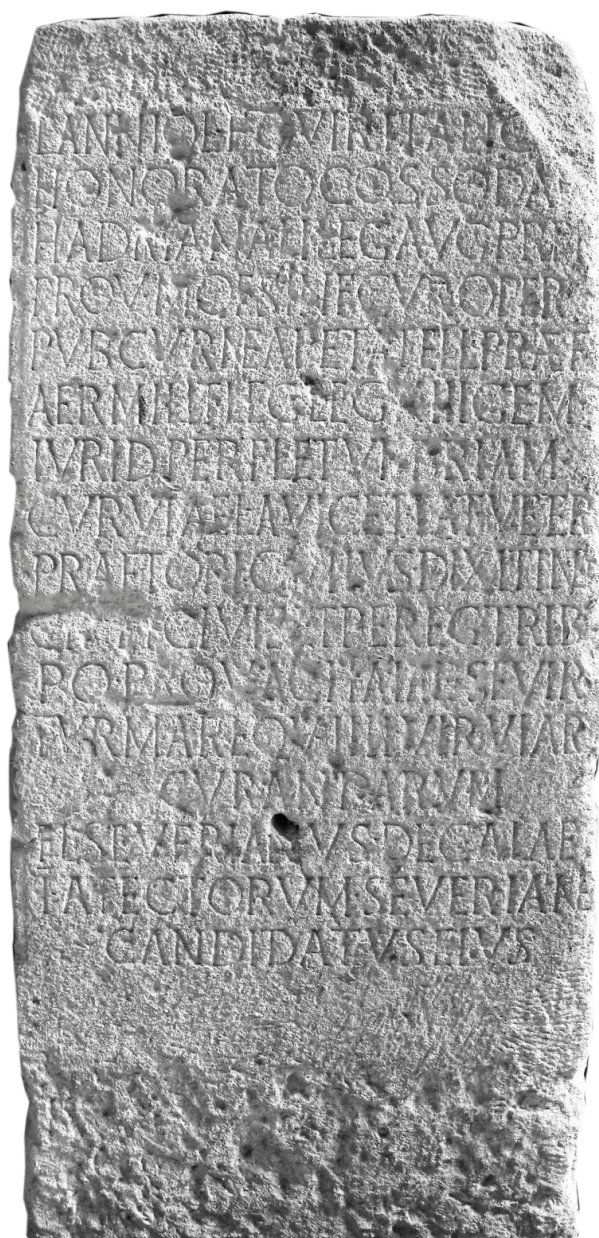 L ANNIO L F QVIR ITALIC
HONORATO COS SODA
HADRIANALI LEG AVG PR PR
PROV MOES INF CVR OPER
PVB CVR NEAPL ET ATELL PRAEF
AER MILIT LEG LEG XIII GEME
IVRID PER FL ET VMBRIAM
CVR VIAE LAVIC ET LAT VETER
PRAETO QVI IVS DIXIT INT
CIVES ET PEREG TRIB
PO PL ACHAIAE SEVIR
TVRMAR EQV IIII VIR VIAR
CVRANDARVM
FL SEVERIANVS DEC ALAE
I ATECTORVM SEVERIANE
CANDIDATVS EIVS